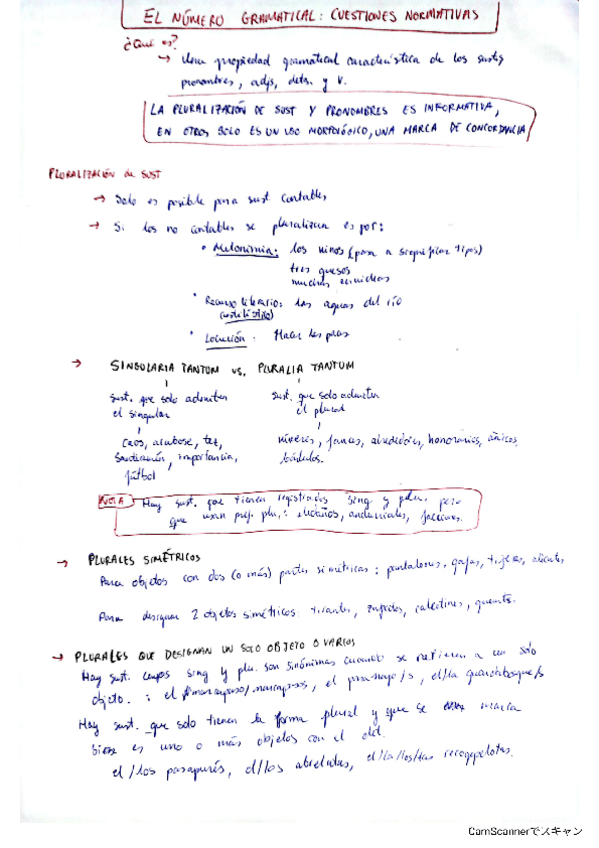 EL NÚMERO GRAMATICAL: CUESTIONES NORMATIVAS
¿Qué es?
→ Una propiedad gramatical característica de los susts
pronombres, adjs, dets. y v.
LA PLURALIZACIÓN DE SUST Y PRONOMBRES ES INFORMATIVA,
EN OTROS SOLO ES UN USO MORFOLÓGICO, UNA MARCA DE CONCORDANCIA
PLURALIZACIÓN de SUST
→ Solo es posible para sust contables
→ Si los no contables se pluralizan es por:
• Metonimia: los vinos (pasa a significar tipos)
tres quesos
muchas
• Recurso literario: las aguas del río
(estilístico)
• Locución: Hacer las paces
→ SINGULARIA TANTUM vs. PLURALIA TANTUM
sust. que solo admiten sust. que solo admiten
el singular el plural
caos, tez, víveres, fauces, alrededores, honorarios, añicos,
importancia, bártulos.
fútbol
NOTA Hay sust. que tienen registrados sing y plu. pero
que usan pref. plu.: andurriales, facciones.
→ PLURALES SIMÉTRICOS
Para objetos con dos (o más) partes simétricas: pantalones, gafas, tijeras, alicates,
Para designar 2 objetos simétricos: tirantes, zapatos, calcetines, guantes.
→ PLURALES QUE DESIGNAN UN SOLO OBJETO O VARIOS
Hay sust. cuyos sing y plu. son sinónimos cuando se refieren a un solo
objeto. : el marcapaso/marcapasos, el, el/la guardabosque/s
Hay sust. que solo tienen la forma plural y que se marca
si es uno o más objetos con el det.
el/los pasapurés, el/los abrelatas, el/la/los/las recogepelotas.
CamScannerでスキャン